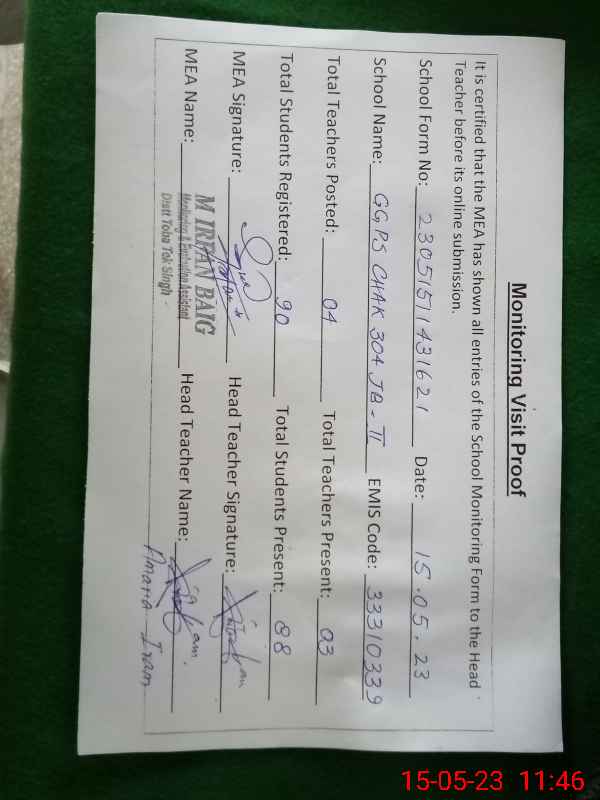 Monitoring Visit Proof
It is certified that the MEA has shown all entries of the School Monitoring Form to the Head
Teacher before its online submission.
School Form No: 23051511431621 Date: 15.05.23
School Name: GGPS CHAK 304 JB-TI EMIS Code: 33310339
Total Teachers Posted: 04 Total Teachers Present: 03
Total Students Registered: 90 Total Students Present: 88
MEA Signature: Head Teacher Signature:
MEA Name: M IRFAN BAIG Head Teacher Name:
Monitoring & Evaluation Assistant
Distt Toba Tek Singh
Iram
15-05-23 11:46